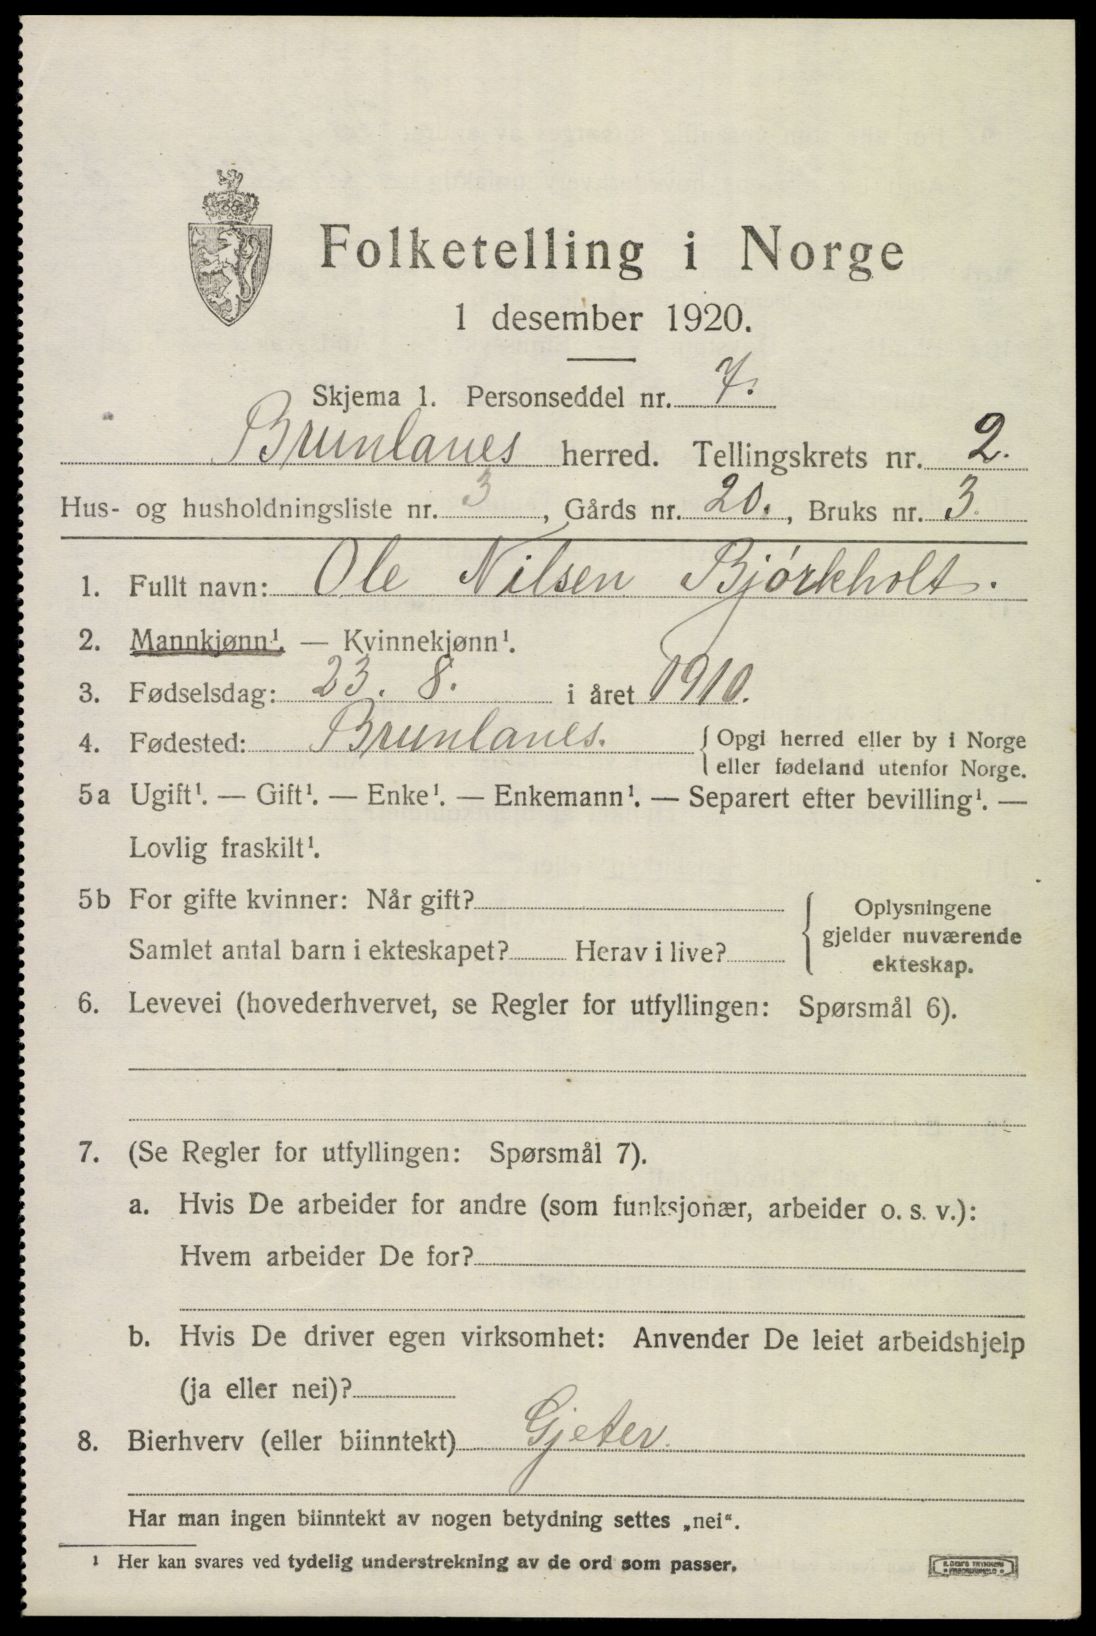 Folketelling i Norge
1 desember 1920.
Skjema 1. Personseddel nr. 7.
Brunlanes herred. Tellingskrets nr. 2.
Hus- og husholdningsliste nr. 3, Gårds nr. 20., Bruks nr. 3.
1. Fullt navn: Ole Nilsen Bjørkholt.
2. Mannkjønn¹. — Kvinnekjønn¹.
3. Fødselsdag: 23. 8. i året 1910.
4. Fødested: Brunlanes. { Opgi herred eller by i Norge
eller fødeland utenfor Norge.
5a Ugift¹. — Gift¹. — Enke¹. — Enkemann¹. — Separert efter bevilling¹. —
Lovlig fraskilt¹.
5b For gifte kvinner: Når gift?
Samlet antal barn i ekteskapet? Herav i live?
{ Oplysningene
gjelder nuværende
ekteskap.
6. Levevei (hovederhvervet, se Regler for utfyllingen: Spørsmål 6).
7. (Se Regler for utfyllingen: Spørsmål 7).
a. Hvis De arbeider for andre (som funksjonær, arbeider o. s. v.):
Hvem arbeider De for?
b. Hvis De driver egen virksomhet: Anvender De leiet arbeidshjelp
(ja eller nei)?
8. Bierhverv (eller biinntekt) Gjeter.
Har man ingen biinntekt av nogen betydning settes „nei“.
¹ Her kan svares ved tydelig understrekning av de ord som passer.